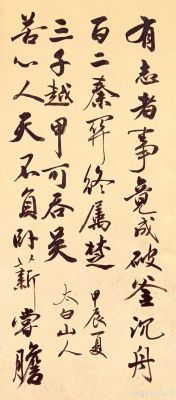 有志者事竟成破釜沉舟
百二秦關終属楚
甲辰夏
苦心人天不負卧薪嘗膽
三千越甲可吞吴
太白山人